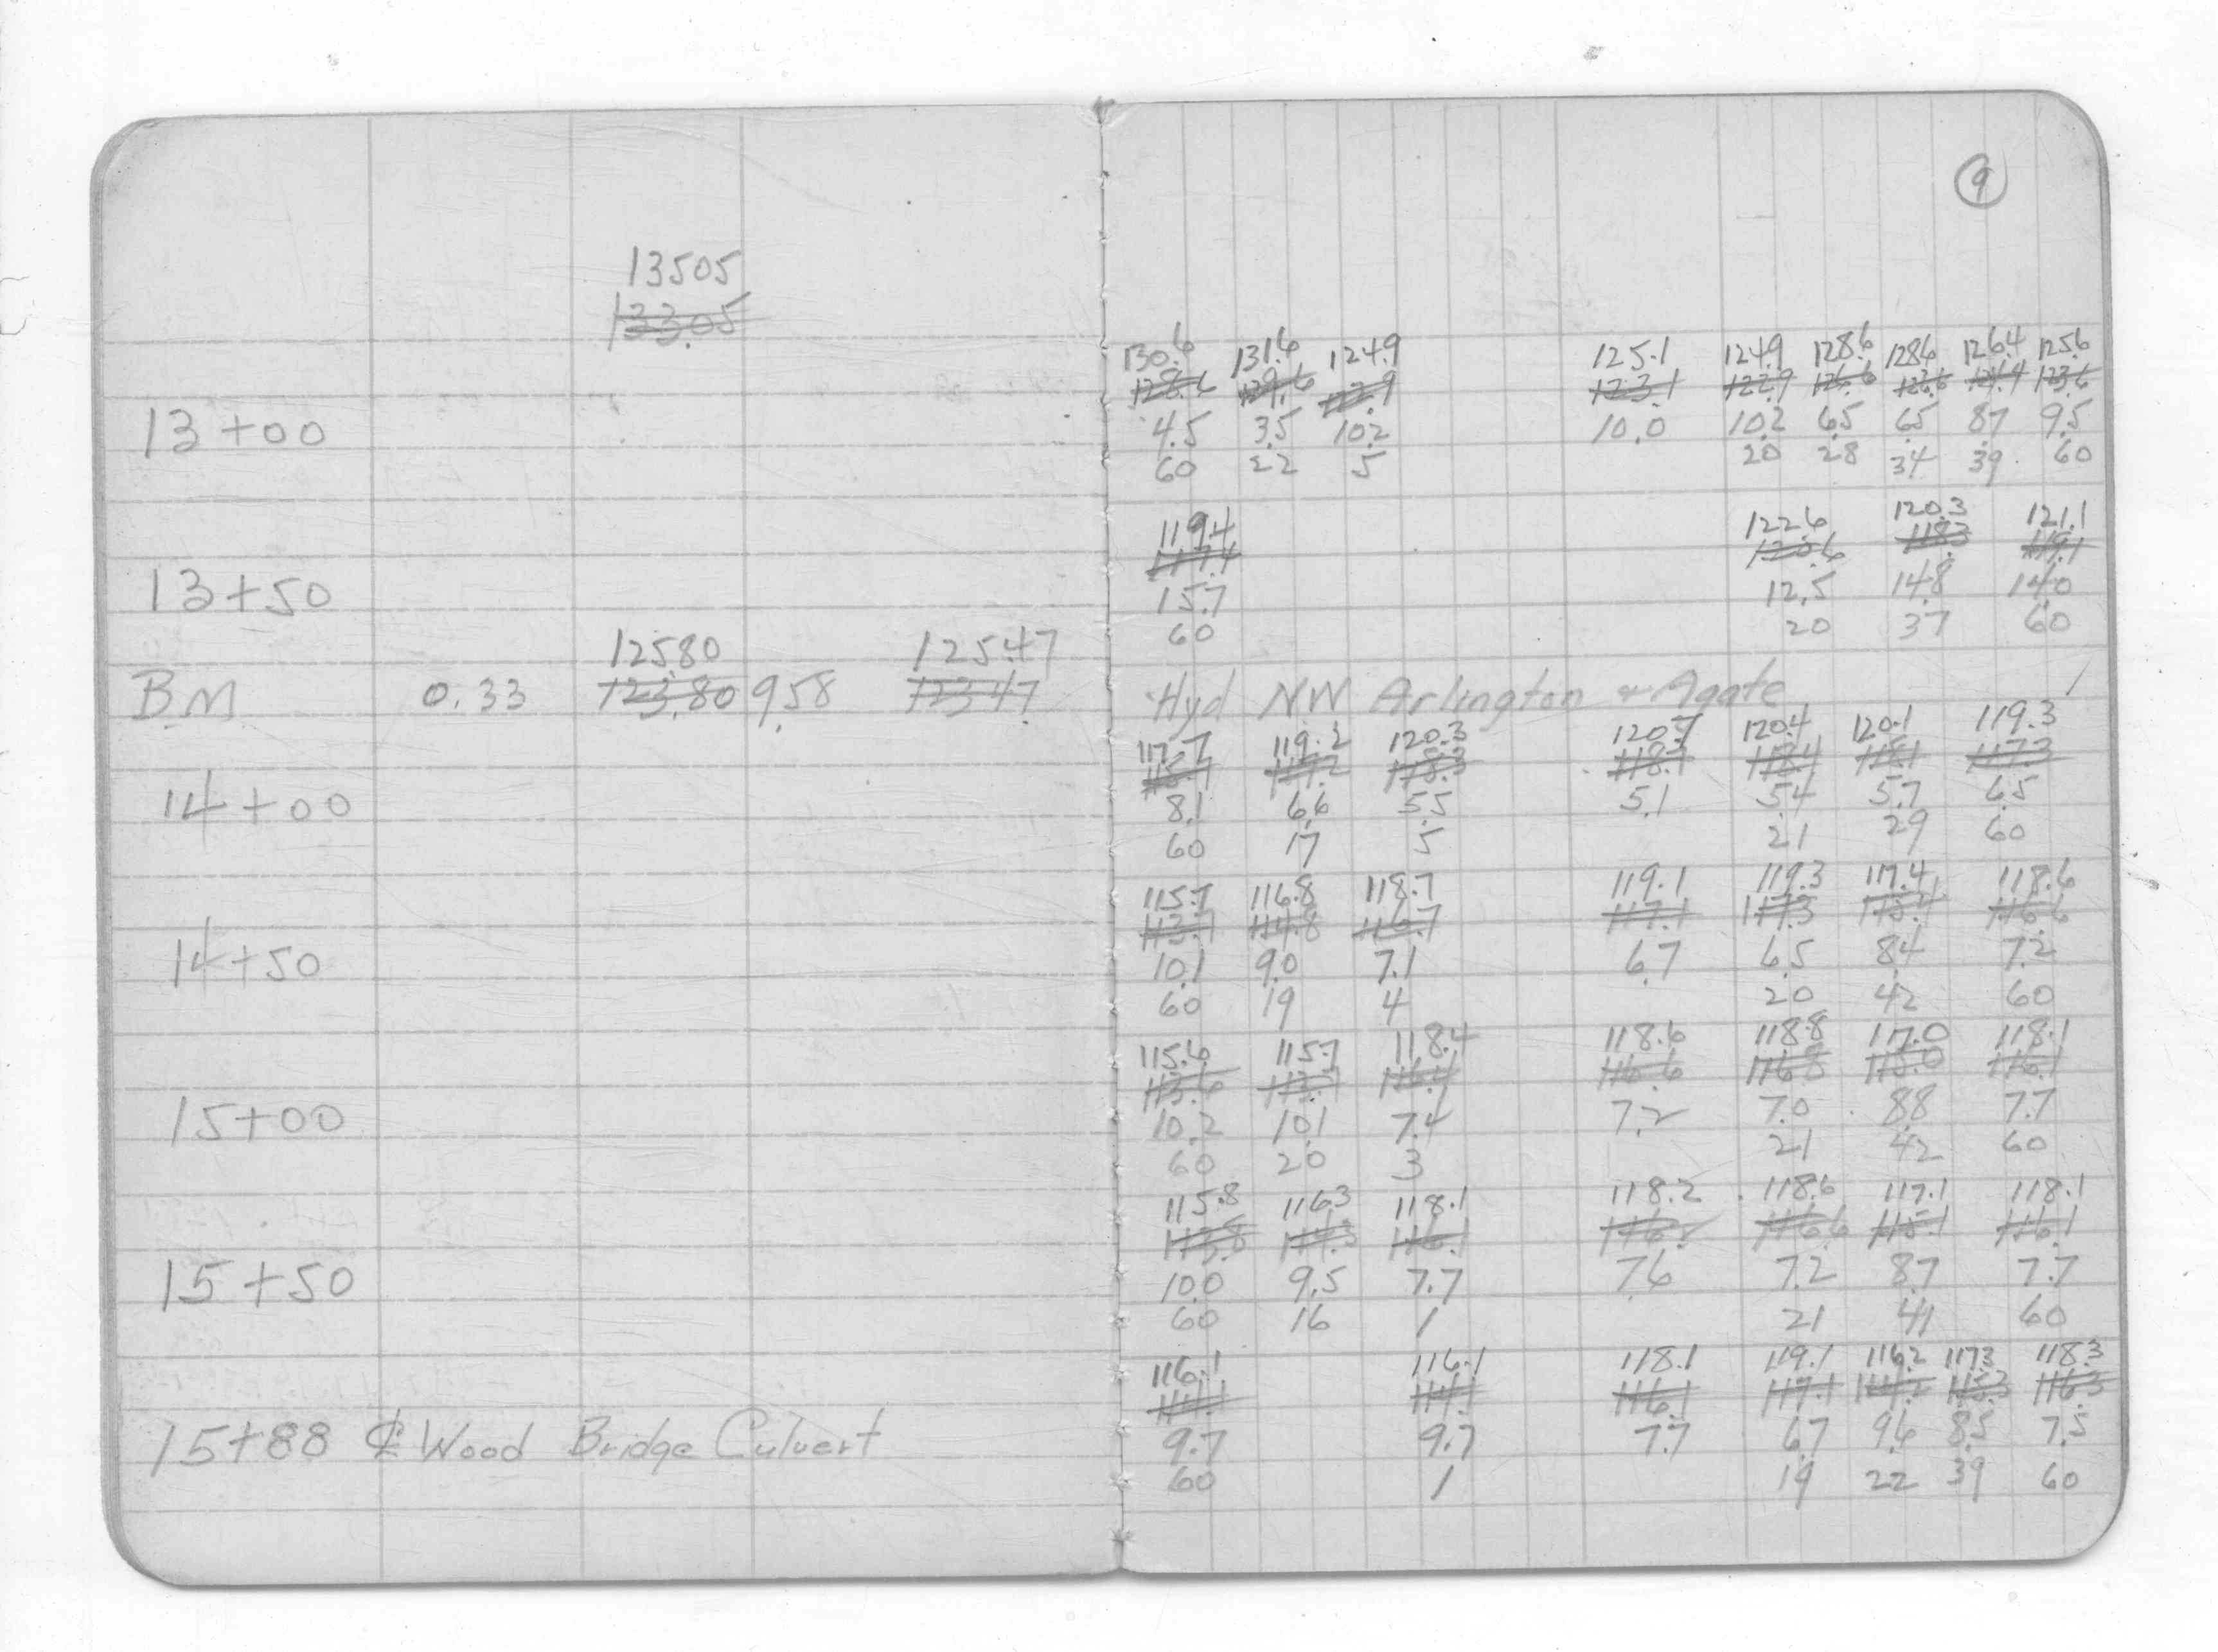 9
13505
133.05
130.6 131.6 124.9 125.1 124.9 128.6 128.6 126.4 125.6
128.6 129.6 122.9 123.1 122.9 126.6 126.6 124.4 123.6
13+00 4.5 3.5 10.2 10.0 10.2 6.5 6.5 8.7 9.5
60 22 5 20 28 34 39 60
119.4 122.6 120.3 121.1
117.4 120.6 118.3 119.1
13+50 15.7 12.5 14.8 14.0
60 20 37 60
125.80 125.47
BM 0.33 123.80 9.58 123.47 Hyd NW Arlington & Agate
117.7 119.2 120.3 120.7 120.4 120.1 119.3
115.7 117.2 118.3 118.7 118.4 118.1 117.3
14+00 8.1 6.6 5.5 5.1 5.4 5.7 6.5
60 17 5 21 29 60
115.7 116.8 118.7 119.1 119.3 117.4 118.6
113.7 114.8 116.7 117.1 117.3 115.4 116.6
14+50 10.1 9.0 7.1 6.7 6.5 8.4 7.2
60 19 4 20 42 60
115.6 115.7 118.4 118.6 118.8 117.0 118.1
113.6 113.7 116.4 116.6 116.8 115.0 116.1
15+00 10.2 10.1 7.4 7.2 7.0 8.8 7.7
60 20 3 21 42 60
115.8 116.3 118.1 118.2 118.6 117.1 118.1
113.8 114.3 116.1 116.2 116.6 115.1 116.1
15+50 10.0 9.5 7.7 7.6 7.2 8.7 7.7
60 16 1 21 41 60
116.1 116.1 118.1 119.1 116.2 117.3 118.3
114.1 114.1 116.1 117.1 114.2 115.3 116.3
15+88 ℄ Wood Bridge Culvert 9.7 9.7 7.7 6.7 9.6 8.5 7.5
60 1 19 22 39 60